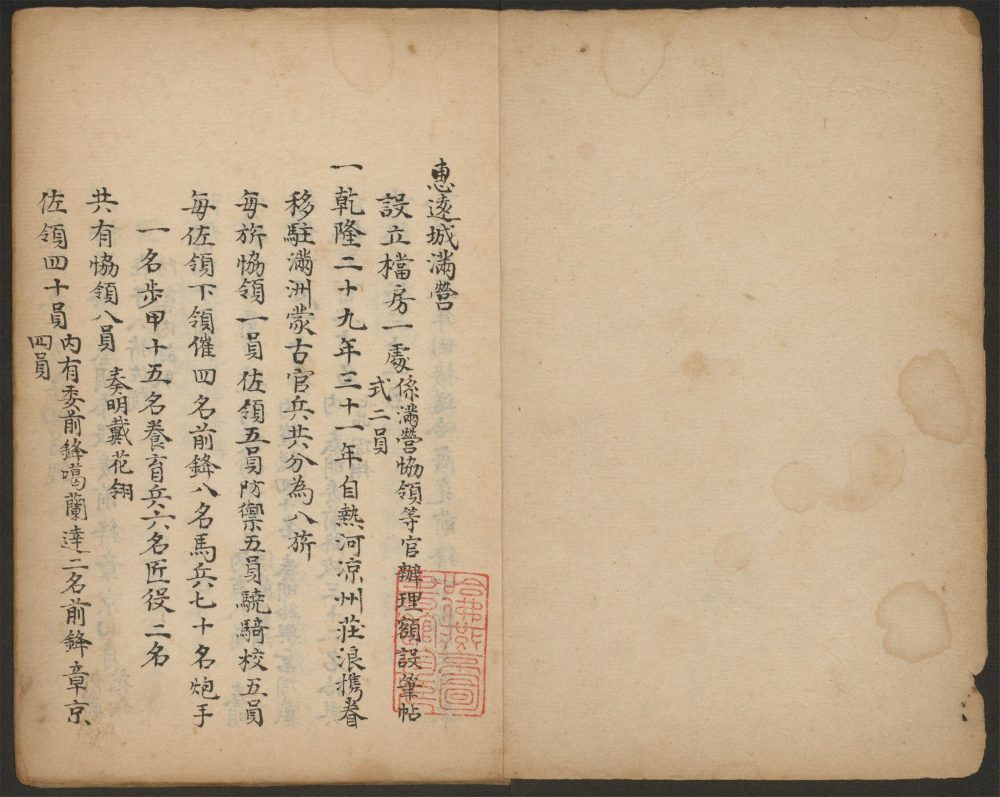 惠遠城滿營
設立檔房一處係滿營協領等官辦理額設筆帖
式二員
一乾隆二十九年三十一年自熱河凉州莊浪携眷
移駐滿洲蒙古官兵共分為八旂
每旂恊領一員佐領五員防禦五員驍騎校五員
每佐領下領催四名前鋒八名馬兵七十名炮手
一名步甲十五名養育兵六名匠役二名
共有恊領八員奏明戴花翎
佐領四十員內有委前鋒噶蘭達二名前鋒章京
四員